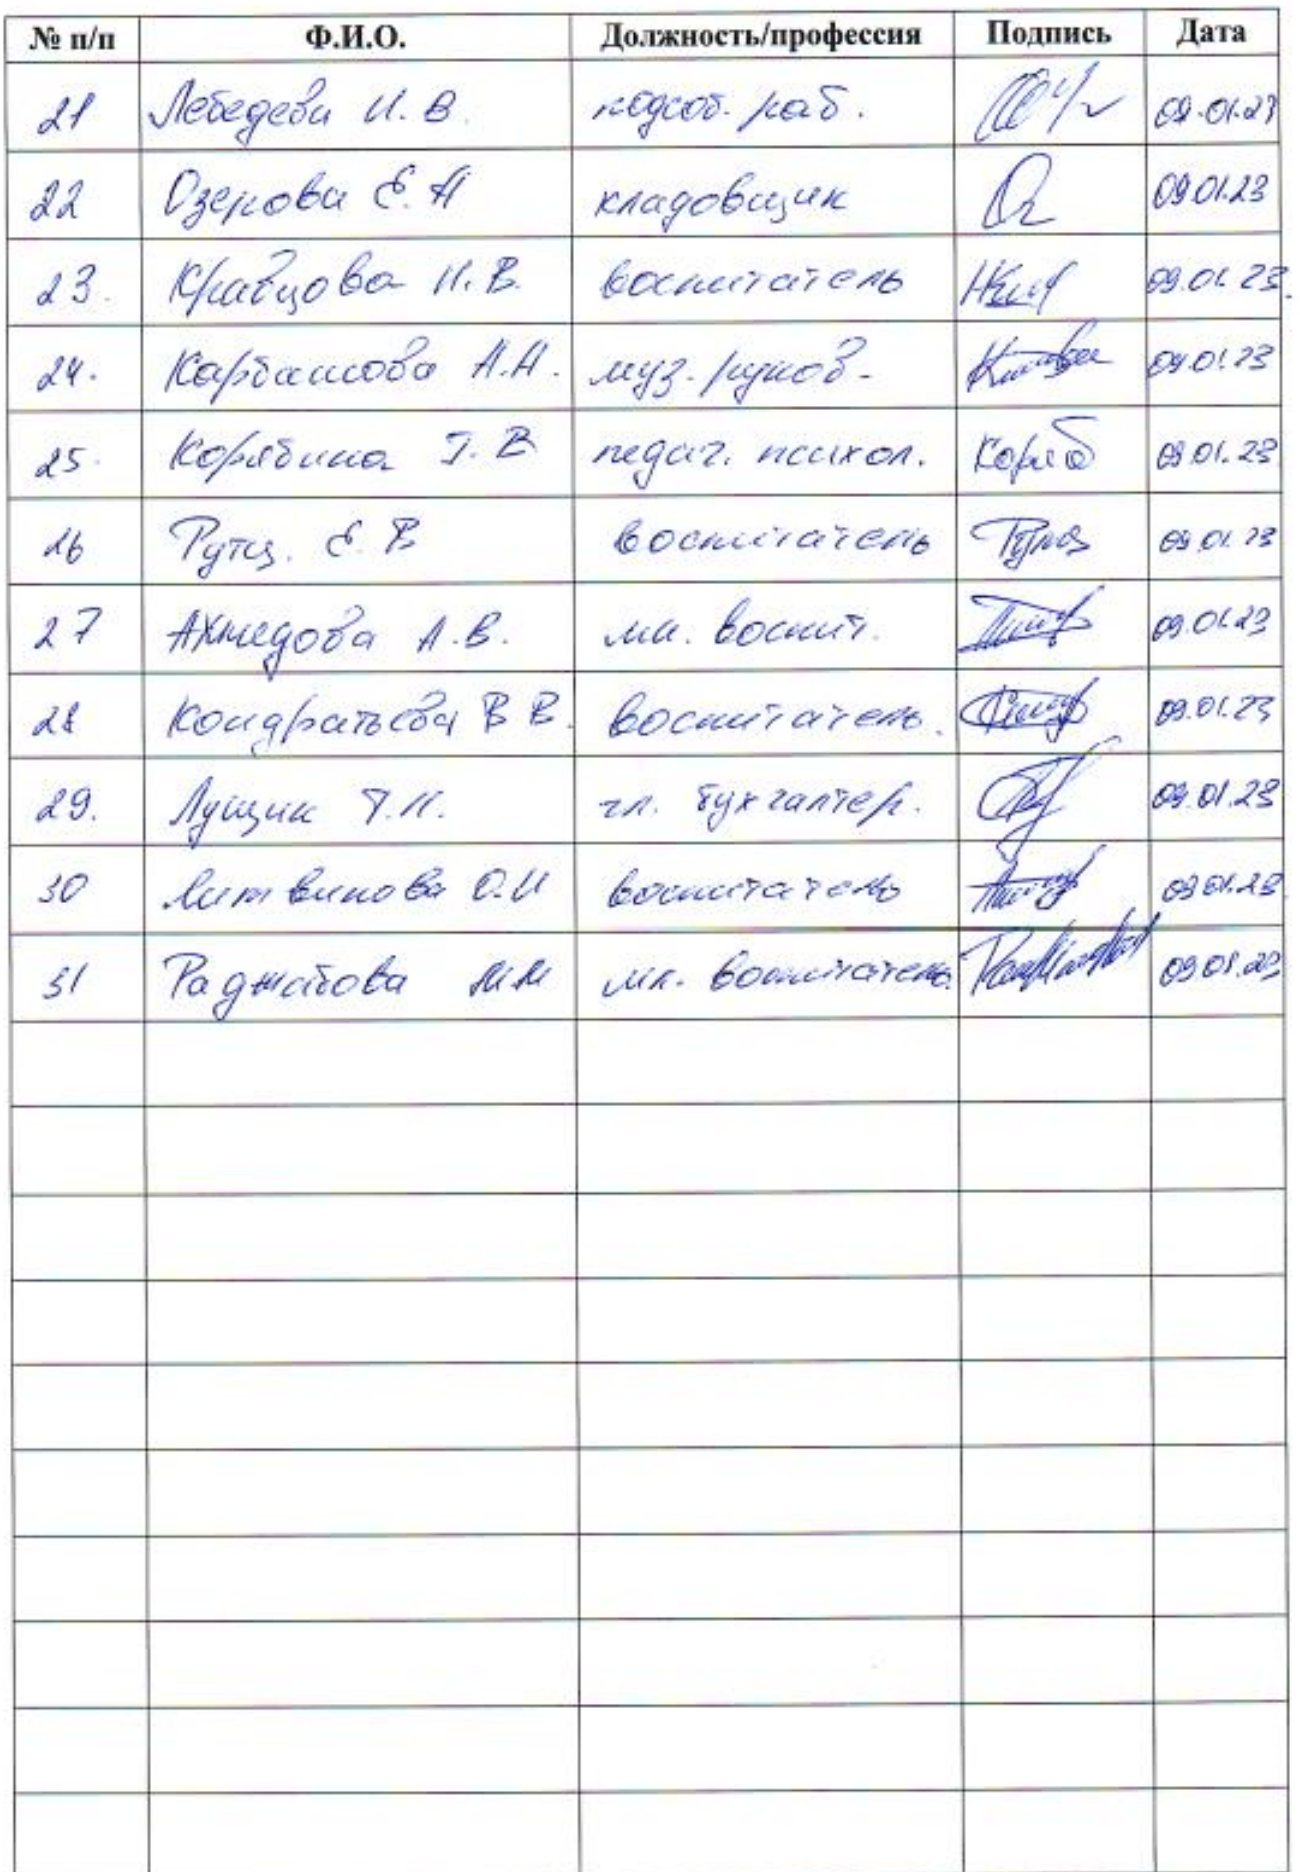 № п/п Ф.И.О. Должность/профессия Подпись Дата
21 Лебедева И. В. подсоб. раб. 09.01.23
22 Озерова Е. А кладовщик 09.01.23
23. Кравцова Н. В. воспитатель 09.01.23.
24. Карбашова А.А. муз. руков. 09.01.23
25. Корябина Т. В педаг. психол. Коряб 09.01.23
26 Рутц. Е. В воспитатель Рутц 09.01.23
27 Ахмедова А.В. мл. воспит. 09.01.23
28 Кондратьева В В. воспитатель. 09.01.23
29. Лущик Т.Н. гл. бухгалтер. 09.01.23
30 Литвинова О.И воспитатель 09.01.23
31 Раджабова М М мл. воспитатель. 09.01.23